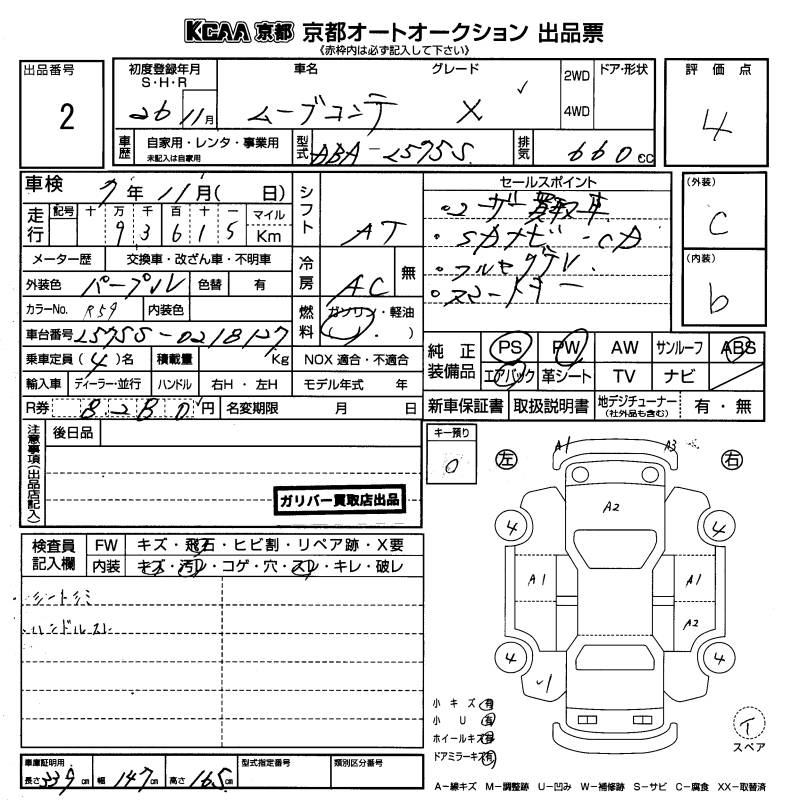 KCAA 京都 京都オートオークション 出品票
《赤枠内は必ず記入して下さい》
出品番号
2
初度登録年月
S・H・R
26 11月
車名
グレード
ムーブコンテ X
2WD
4WD
ドア・形状
評価点
4
車歴
自家用・レンタ・事業用
未記入は自家用
型式
ABA-L575S
排気
660cc
車検
7年 11月( 日)
走行
記号 十 万 千 百 十 一 マイル
9 3 6 1 5 Km
メーター歴 交換車・改ざん車・不明車
外装色 パープル 色替 有
カラーNo. R59 内装色
車台番号 L575S-0218127
乗車定員(4)名 積載量 Kg
輸入車 ディーラー・並行 ハンドル 右H・左H
R券 8280円 名変期限 月 日
シフト
AT
冷房
AC 無
燃料
ガソリン・軽油
( )
NOX 適合・不適合
モデル年式 年
セールスポイント
・ユーザー買取車
・SDナビ・CD
・フルセグTV
・スマートキー
(外装)
C
(内装)
b
純正装備品
PS PW AW サンルーフ ABS
エアバック 革シート TV ナビ
新車保証書 取扱説明書 地デジチューナー
(社外品も含む)
有・無
注意事項(出品店記入)
後日品
ガリバー買取店出品
キー預り
0
左
右
A1 A3
A2
4 4
A1 A1
A2
4 4
検査員記入欄
FW キズ・飛石・ヒビ割・リペア跡・X要
内装 キズ・汚レ・コゲ・穴・スレ・キレ・破レ
シートシミ
ハンドルスレ
小キズ 有
小U 有
ホイールキズ 有
ドアミラーキズ 有
T
スペア
車庫証明用
長さ339cm 幅147cm 高さ165cm
型式指定番号
類別区分番号
A-線キズ M-調整跡 U-凹み W-補修跡 S-サビ C-腐食 XX-取替済